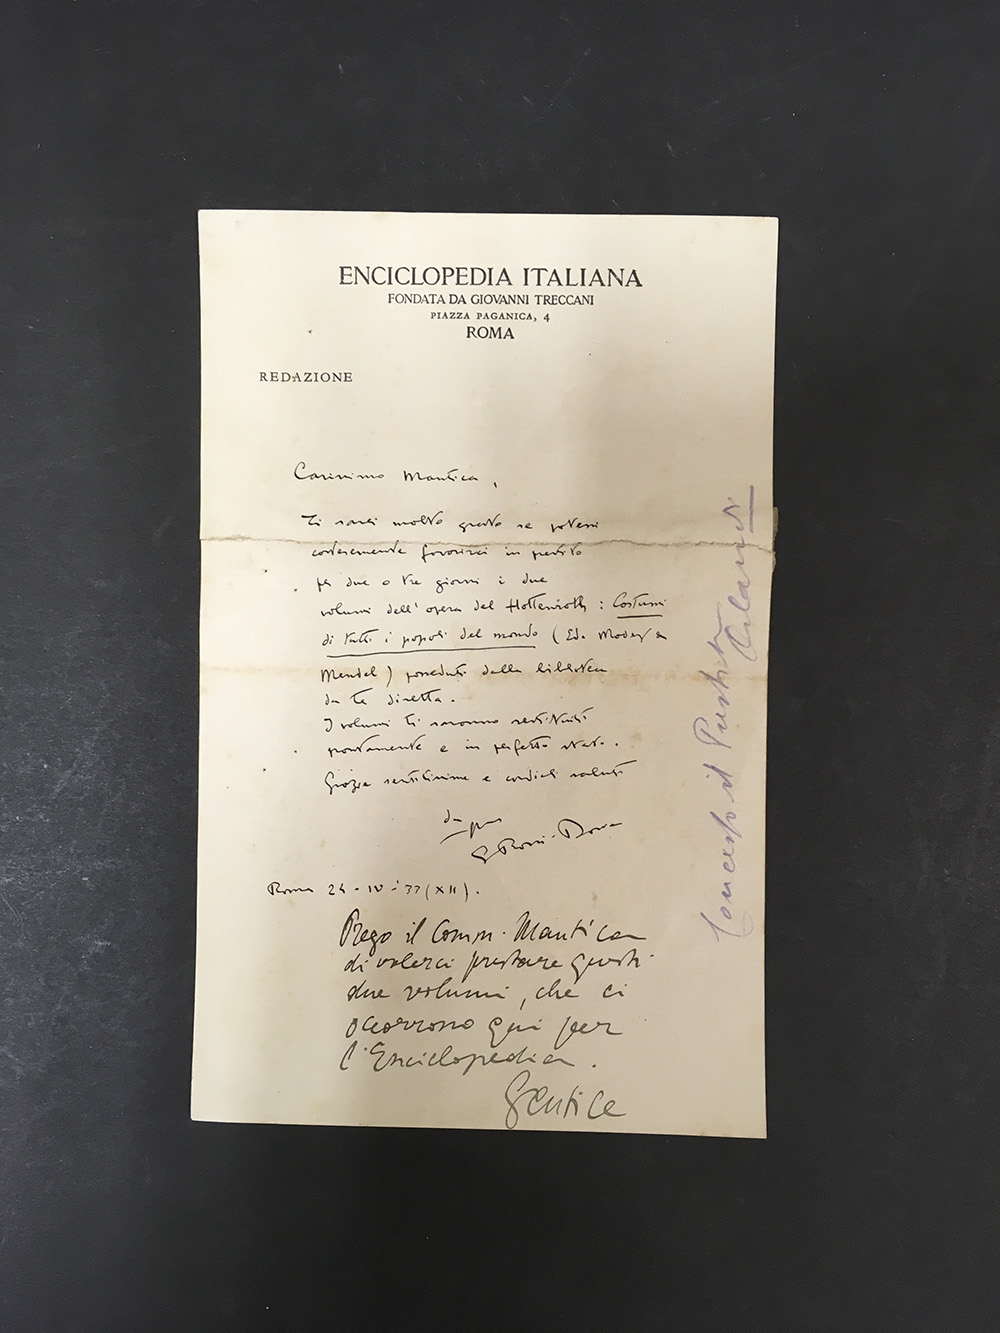 ENCICLOPEDIA ITALIANA
FONDATA DA GIOVANNI TRECCANI
PIAZZA PAGANICA, 4
ROMA
REDAZIONE
Carissimo Mantica,
Ti sarei molto grato se potessi
cortesemente favorirci in prestito
per due o tre giorni i due
volumi dell'opera del Hottenroth: Costumi
di tutti i popoli del mondo (Ed. Modes e
Mendel) posseduti dalla biblioteca
da te diretta.
I volumi ti saranno restituiti
prontamente e in perfetto stato.
Grazie sentitissime e cordiali saluti
Roma 24-IV-33 (XII).
Prego il Comm. Mantica
di volerci prestare questi
due volumi, che ci
occorrono qui per
l'Enciclopedia.
Gentile
Concesso il Prestito